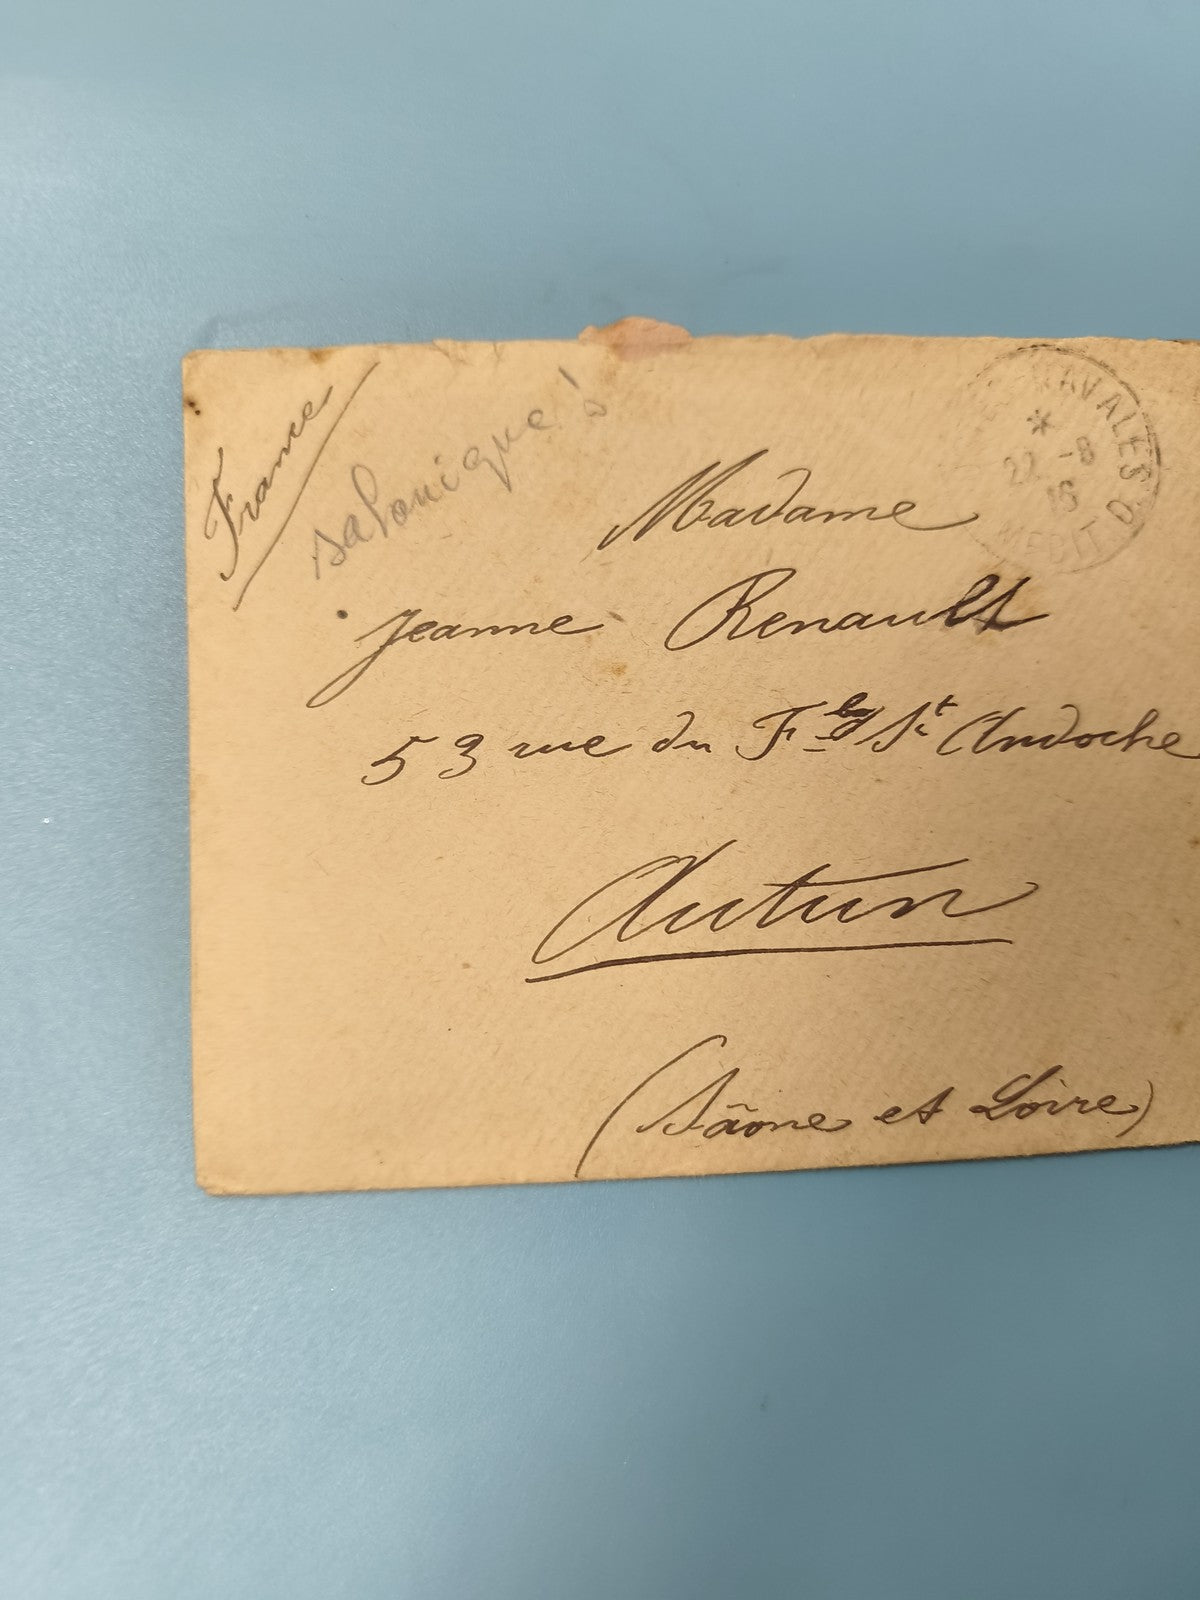 France
salonique à
Madame
Jeanne Renault
53 rue du Fbg St Andoche
Autun
(Sâone et Loire)
NAVALES D
*
22 -8
16
MEDIT